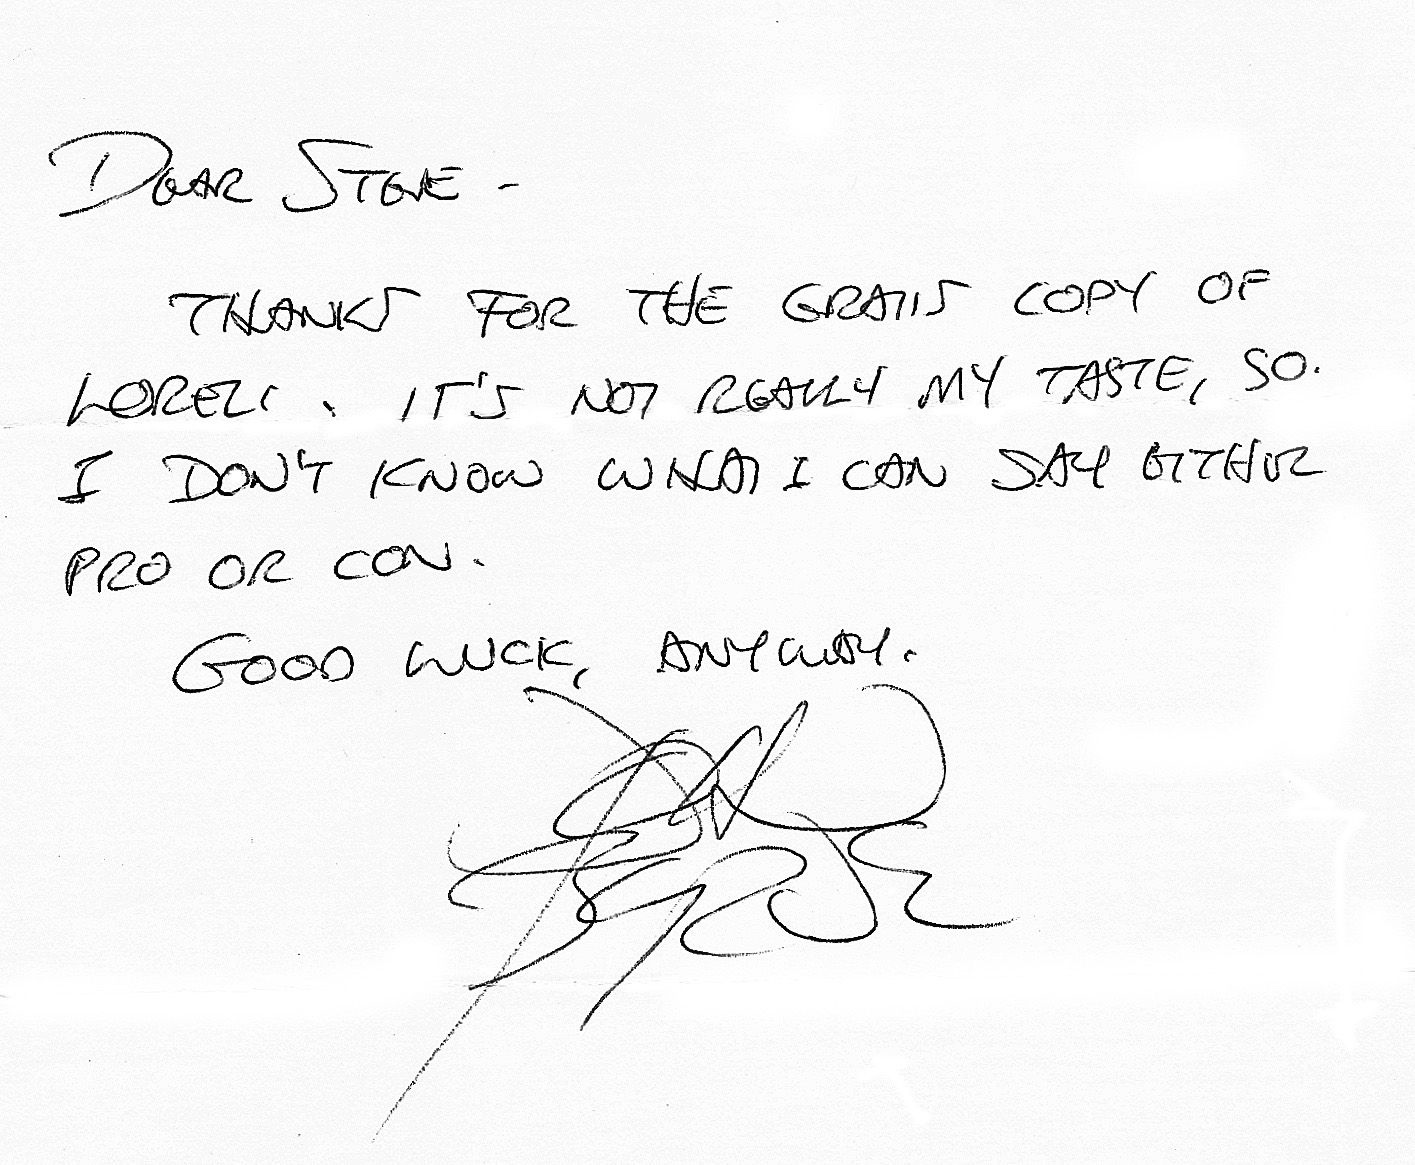 DEAR STEVE -
THANKS FOR THE GRATIS COPY OF
LORELI. IT'S NOT REALLY MY TASTE, SO.
I DON'T KNOW WHAT I CAN SAY EITHER
PRO OR CON.
GOOD LUCK, ANYWAY.